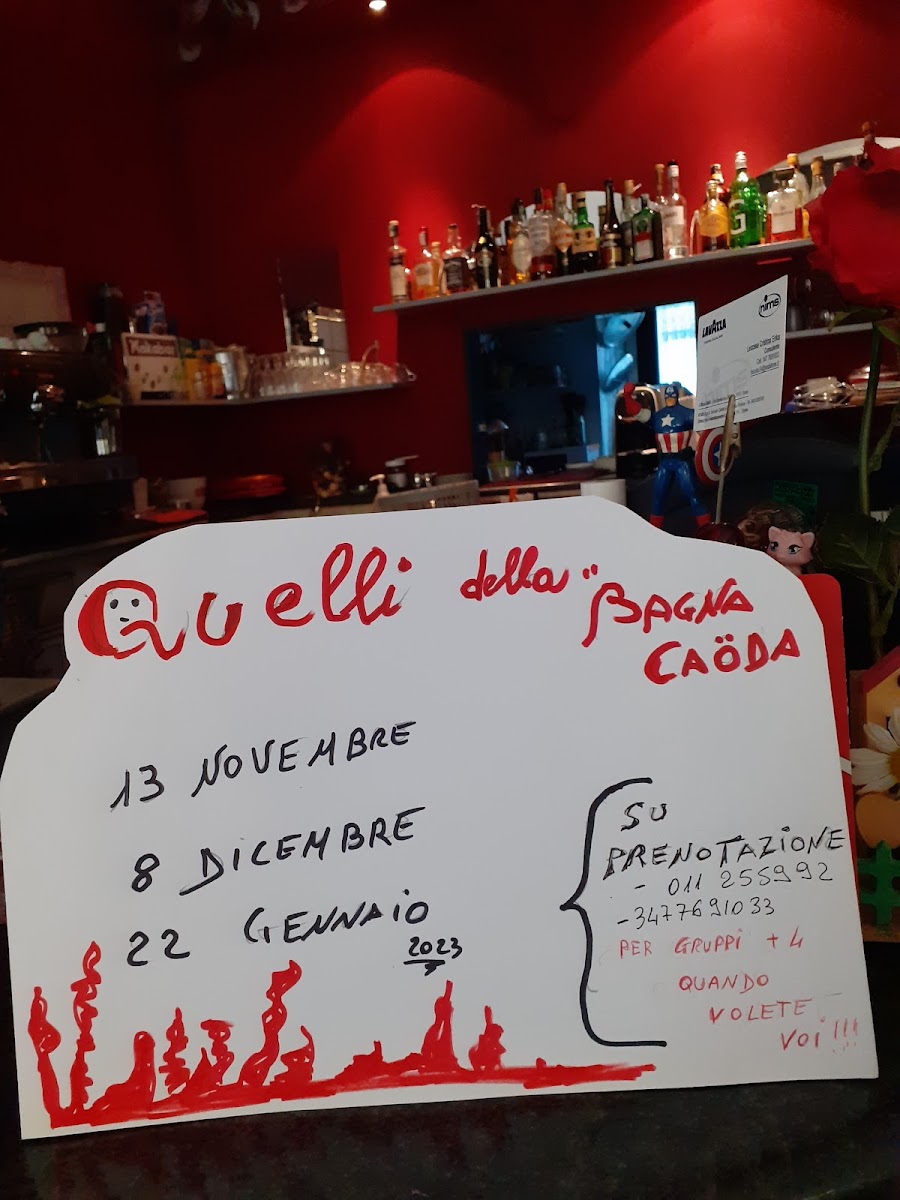 LAVAZZA
nims
Quelli della "BAGNA
CAÖDA
13 NOVEMBRE
8 DICEMBRE
22 GENNAIO
2023
SU
PRENOTAZIONE
- 011 255992
- 3477691033
PER GRUPPI + 4
QUANDO
VOLETE
VOI !!!